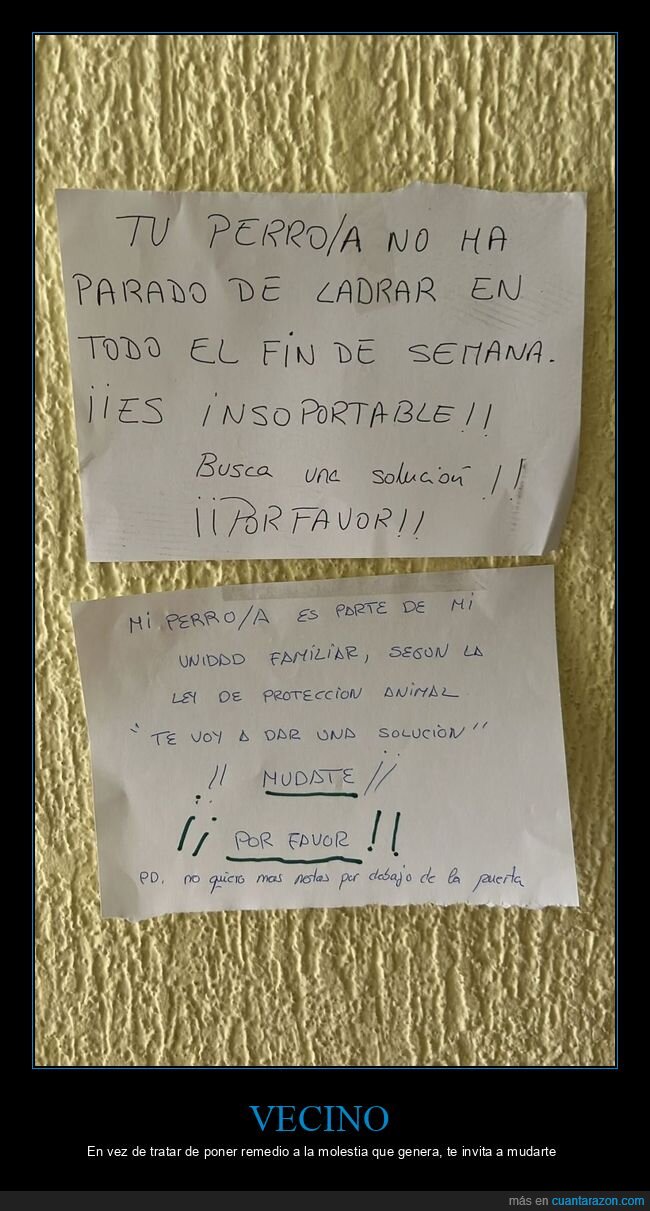 TU PERRO/A NO HA
PARADO DE LADRAR EN
TODO EL FIN DE SEMANA.
¡¡ES INSOPORTABLE!!
Busca una solución!!
¡¡POR FAVOR!!
MI PERRO/A ES PARTE DE MI
UNIDAD FAMILIAR, SEGUN LA
LEY DE PROTECCION ANIMAL
"TE VOY A DAR UNA SOLUCION"
!! MUDATE ¡¡
¡¡ POR FAVOR !!
PD. no quiero mas notas por debajo de la puerta
VECINO
En vez de tratar de poner remedio a la molestia que genera, te invita a mudarte
más en cuantarazon.com